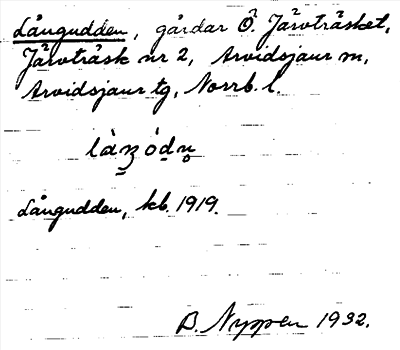 Långudden, gårdar Ö. Järvträsket,
Järvträsk nr 2, Arvidsjaur sn,
Arvidsjaur tg, Norrb. l.
Långudden, kb. 1919.
B. Nyppen 1932.